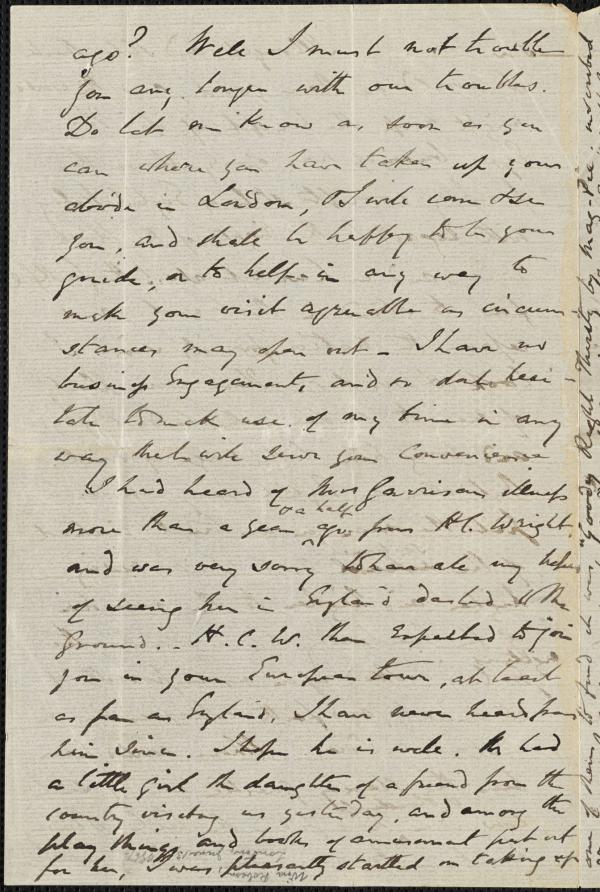 ago? Well I must not trouble
you any longer with our troubles.
Do let me know as soon as you
can where you have taken up your
abode in London, & I will come & see
you, and shall be happy to be your
guide, or to help in any way to
make your visit agreeable as circum
stances may open out - I have no
business Engagements, and so dont hesi-
tate to make use of my time in any
way that will serve your Convenience
I had heard of Mrs Garrisons illness
or a half
more than a year ago from H C. Wright
and was very sorry to have all my hopes
of seeing her in England dashed to the
Ground.. H. C. W. then Expected to join
you in your European tour, at least
as far as England. I have never heard from
him since. I hope he is well. We had
a little girl the daughter of a friend from the
country visiting us yesterday, and among the
play things and books of amusement put out
for her, I was pleasantly startled on taking up
one of them to find it was, "Goody Right Thirsty by Mag-Pie. inscribed